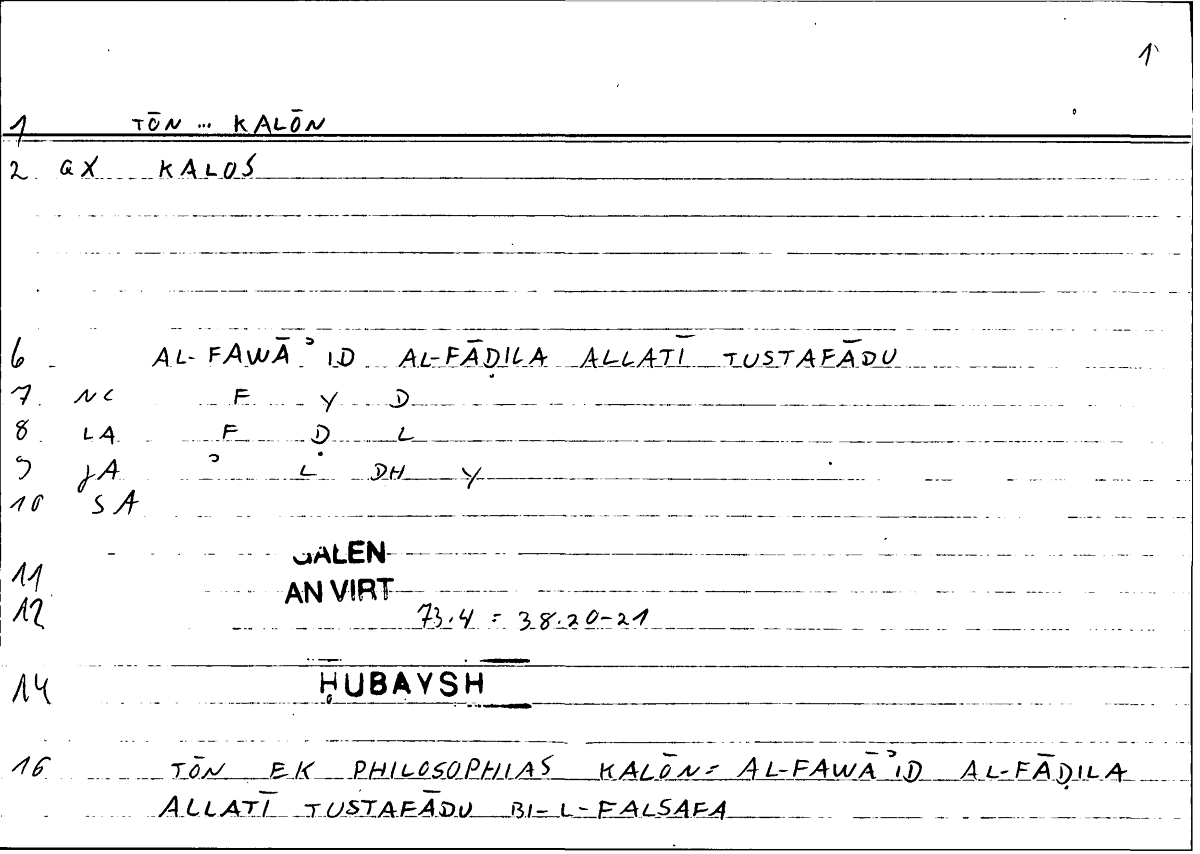 1
1 TŌN ... KALŌN
2. GX KALOS
6 AL-FAWĀʾID AL-FĀḌILA ALLATĪ TUSTAFĀDU
7. NC F Y D
8 LA F Ḍ L
9 JA ʾ L DH Y
10 SA
11 GALEN
12 AN VIRT
73.4 = 38.20-21
14 ḤUBAYSH
16 TŌN EK PHILOSOPHIAS KALŌN = AL-FAWĀʾID AL-FĀḌILA
ALLATĪ TUSTAFĀDU BI-L-FALSAFA